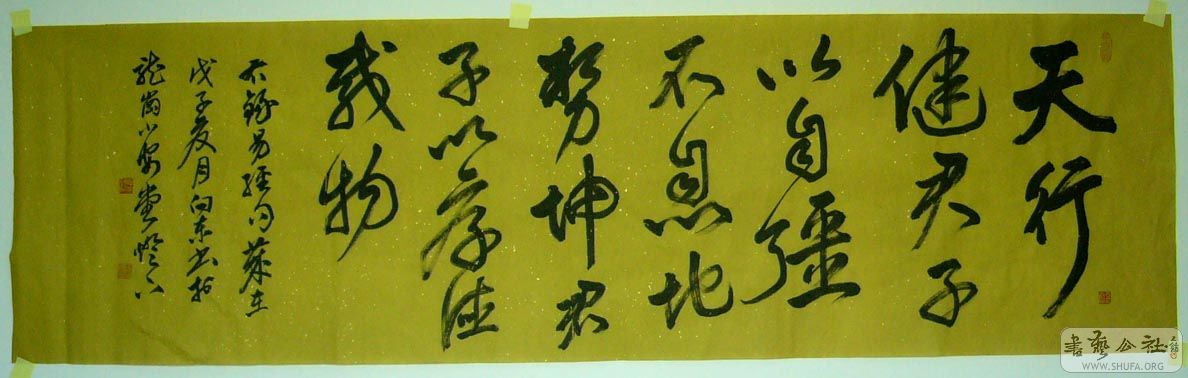 天行
健君子
以自彊
不息地
势坤君
子以厚德
载物
右录易经句岁在
戊子夏月向东书于
龙岗小
书艺公社
WWW.SHUFA.ORG